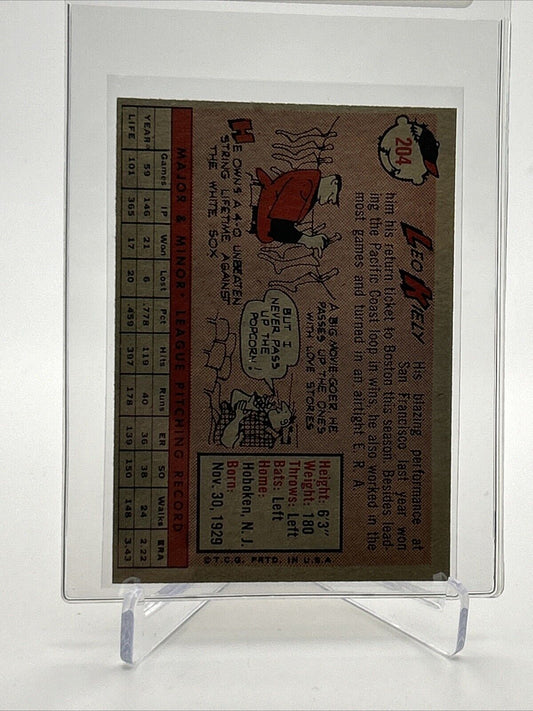 204
LEO KIELY
His blazing performance at
San Francisco last year won
him his return ticket to Boston this season. Besides lead-
ing the Pacific Coast loop in wins, he also worked in the
most games and turned in an airtight E. R. A.
HE OWNS A 4-0 UNBEATEN
STRING LIFETIME AGAINST
THE WHITE SOX
A BIG MOVIE-GOER, HE
PASSES UP THE ONES
WITH LOVE STORIES
BUT I
NEVER PASS
UP THE
POPCORN!
Height: 6'3"
Weight: 180
Throws: Left
Bats: Left
Home:
Hoboken, N. J.
Born:
Nov. 30, 1929
© T.C.G. PRTD. IN U.S.A.
MAJOR & MINOR LEAGUE PITCHING RECORD
Games IP Won Lost Pct Hits Runs ER SO Walks ERA
YEAR 59 146 21 6 .778 119 40 36 38 24 2.22
LIFE 101 365 17 20 .459 397 178 139 150 148 3.43